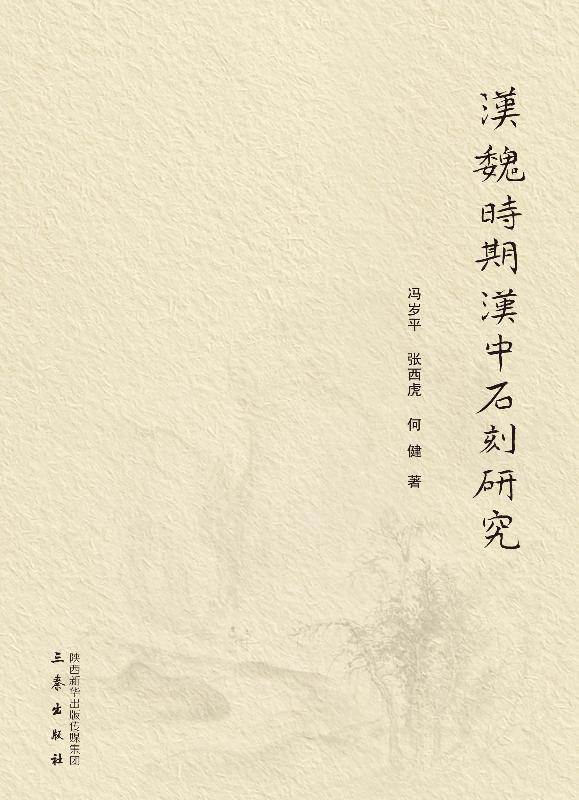 漢魏時期漢中石刻研究
冯岁平 张西虎 何健 著
陕西新华出版传媒集团
三秦出版社